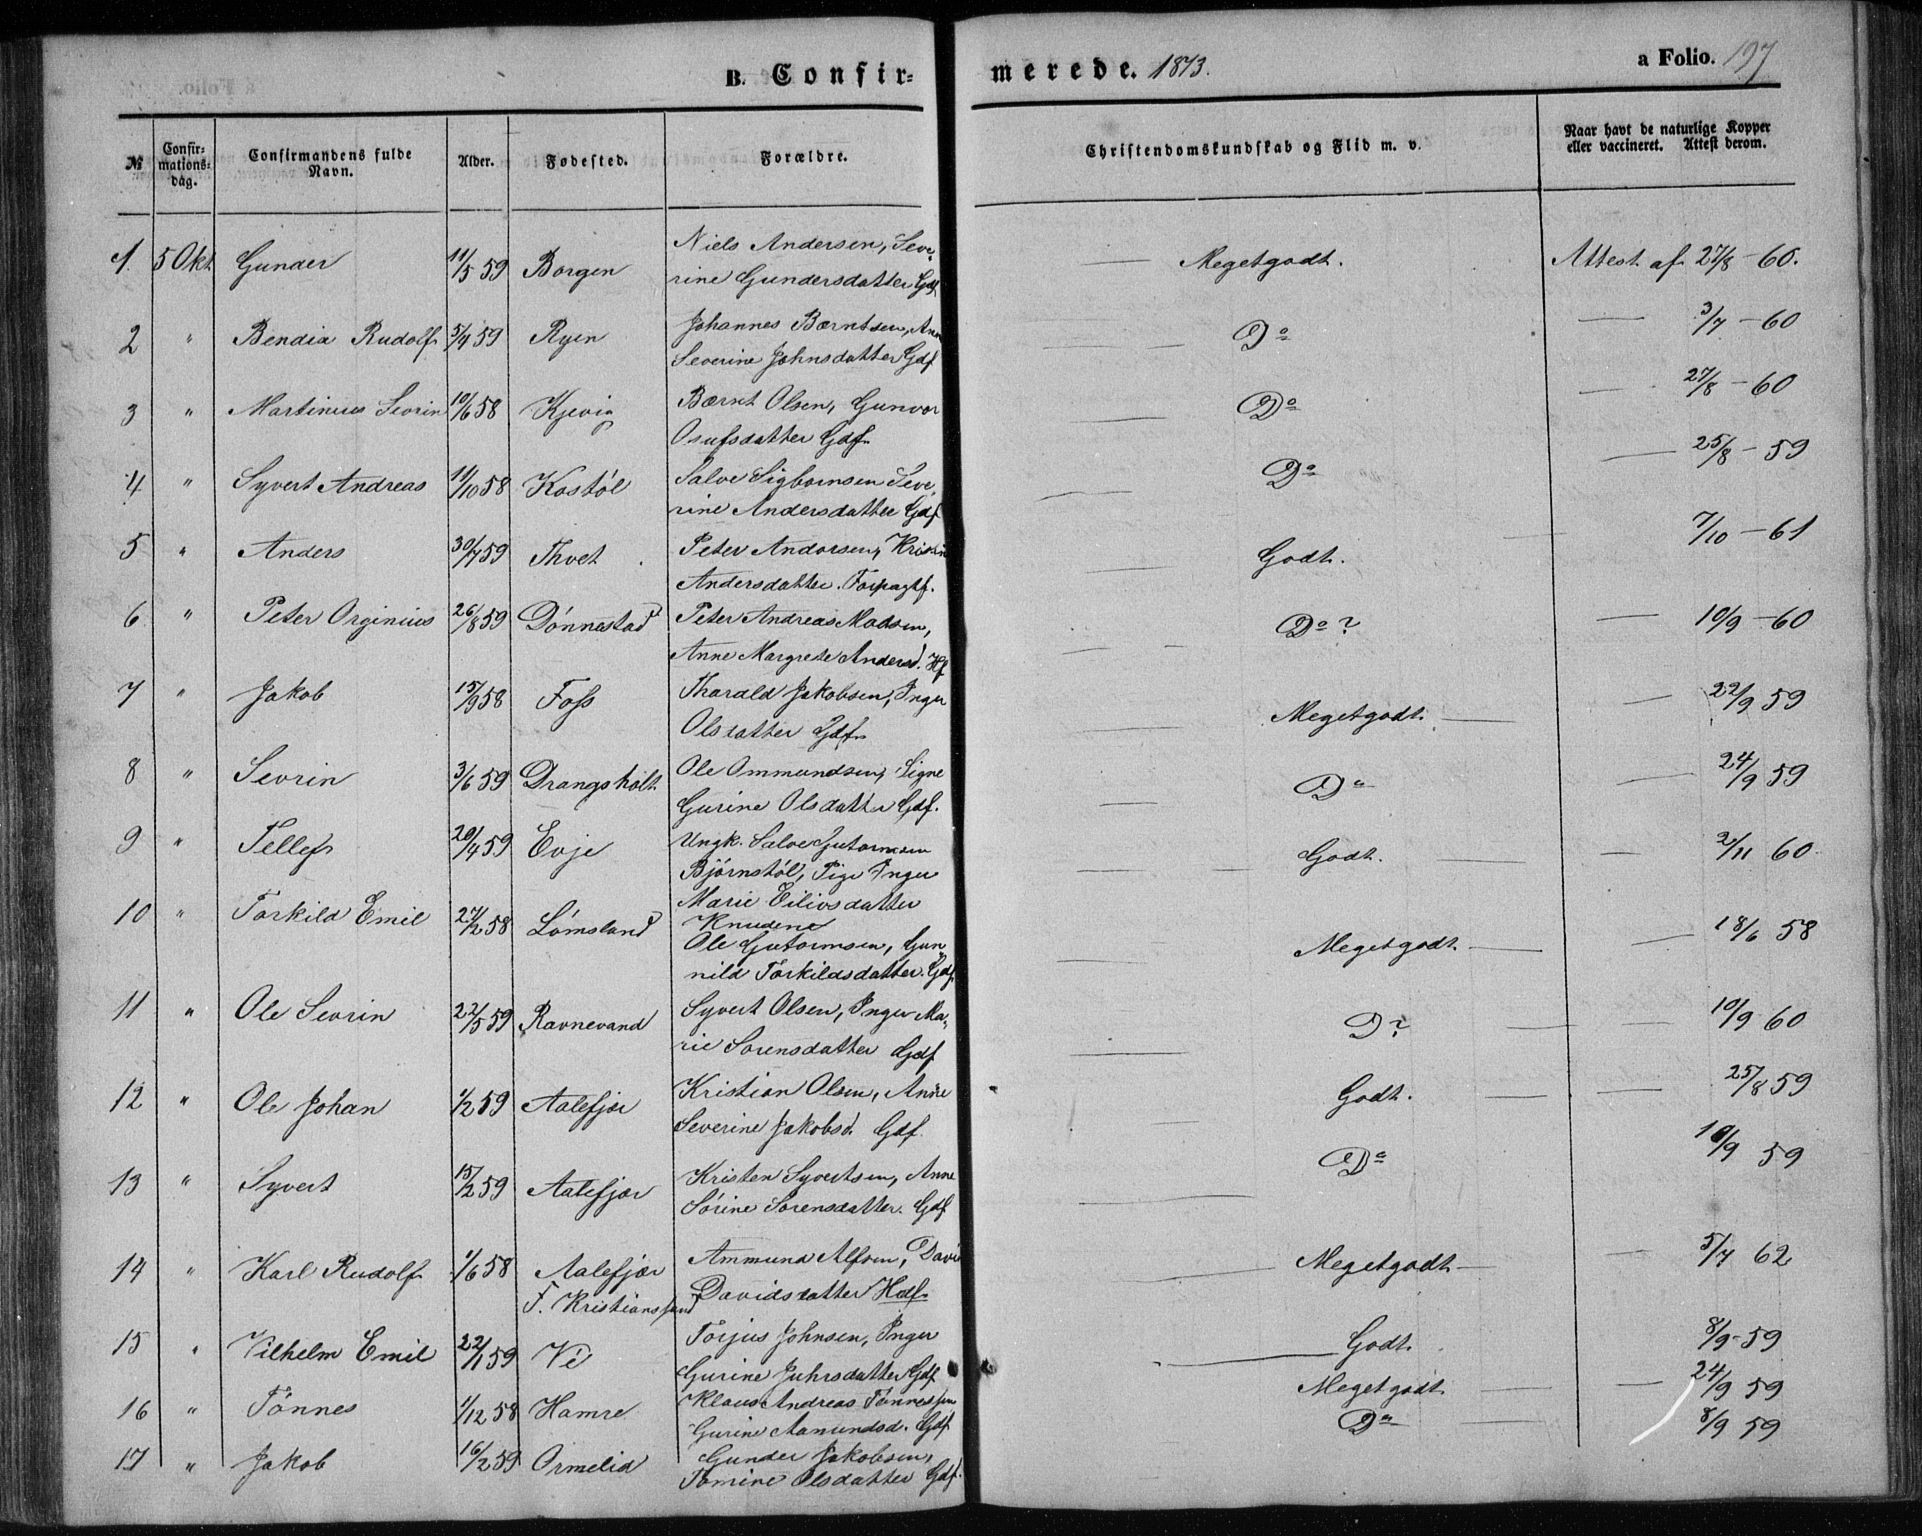 B. Confir= merede. 1873. a Folio. 197
№ Confir-mations-dag. Confirmandens fulde Navn. Alder. Fødested. Forældre. Christendomskundskab og Flid m. v. Naar havt de naturlige Kopper eller vaccineret. Attest derom.
1. 5 Okt Gunder 11/5 59 Borgen Niels Andersen, Seve- Megetgodt. Attest af 27/8 - 60.
rine Gundersdatter Gdf
2 " Bendix Rudolf 5/4 59 Ryen Johannes Bærntsen, Anne Do 3/7 - 60
Severine Johnsdatter Gdf
3 " Martinius Sevrin 10/6 58 Kjevig Bærnt Olsen, Gunvor Do 27/8 - 60
Osufsdatter Gdf.
4 " Syvert Andreas 11/10 58 Kostøl Salve Sigbørnsen Seve- Do 25/8 - 59
rine Andersdatter Gdf
5 " Anders 30/7 59 Thvet Peter Andersen, Kristine Godt. 7/10 - 61
Andersdatter. Forpagtf.
6 " Peter Orginius 26/8 59 Dønnestad Peter Andreas Madsen, Do? 10/9 - 60
Anne Margrete Andersd. Hf
7 " Jakob 15/9 58 Foss Tharald Jakobsen, Inger Megetgodt. 22/9 59
Olsdatter Gdf.
8 " Sevrin 3/6 59 Drangsholt Ole Ommundsen, Signe Do 24/9 59
Gurine Olsdatter Gdf.
9 " Tellef 20/4 59 Evje Ungk. Salve Gutormsen Godt. 2/11 60
Bjørnstøl, Pige Inger
Marie Eilivsdatter
Knudene
10 " Torkild Emil 27/2 58 Lømsland Ole Gutormsen, Gun Megetgodt. 18/6 58
nild Torkildsdatter. Gdf
11 " Ole Sevrin 22/5 59 Ravnevand Syvert Olsen, Inger Ma- D? 10/9 60
rie Sørensdatter Gdf
12 " Ole Johan 1/2 59 Aalefjær Kristian Olsen, Anne Godt. 25/8 59
Severine Jakobsd. Gdf.
13 " Syvert 15/2 59 Aalefjær Kristen Syvertsen, Anne Do 10/9 59
Sørine Sørensdatter. Gdf
14 " Karl Rudolf 1/6 58 Aalefjær Ammund Alfsen, Davi Megetgodt 5/7 62
F. Kristianssand Davidsdatter Hdf.
15 " Vilhelm Emil 22/1 59 Ve Torjus Johnsen, Inger Godt. 8/9 - 59
Gurine Juhrsdatter Gdf
16 " Tønnes 1/12 58 Hamre Klaus Andreas Tønnessen Megetgodt 24/9 59
Gurine Aamundsd. Gdf
17 " Jakob 16/2 59 Ormelid Gunder Jakobsen, Do 8/9 59
Tomine Olsdatter Gdf.